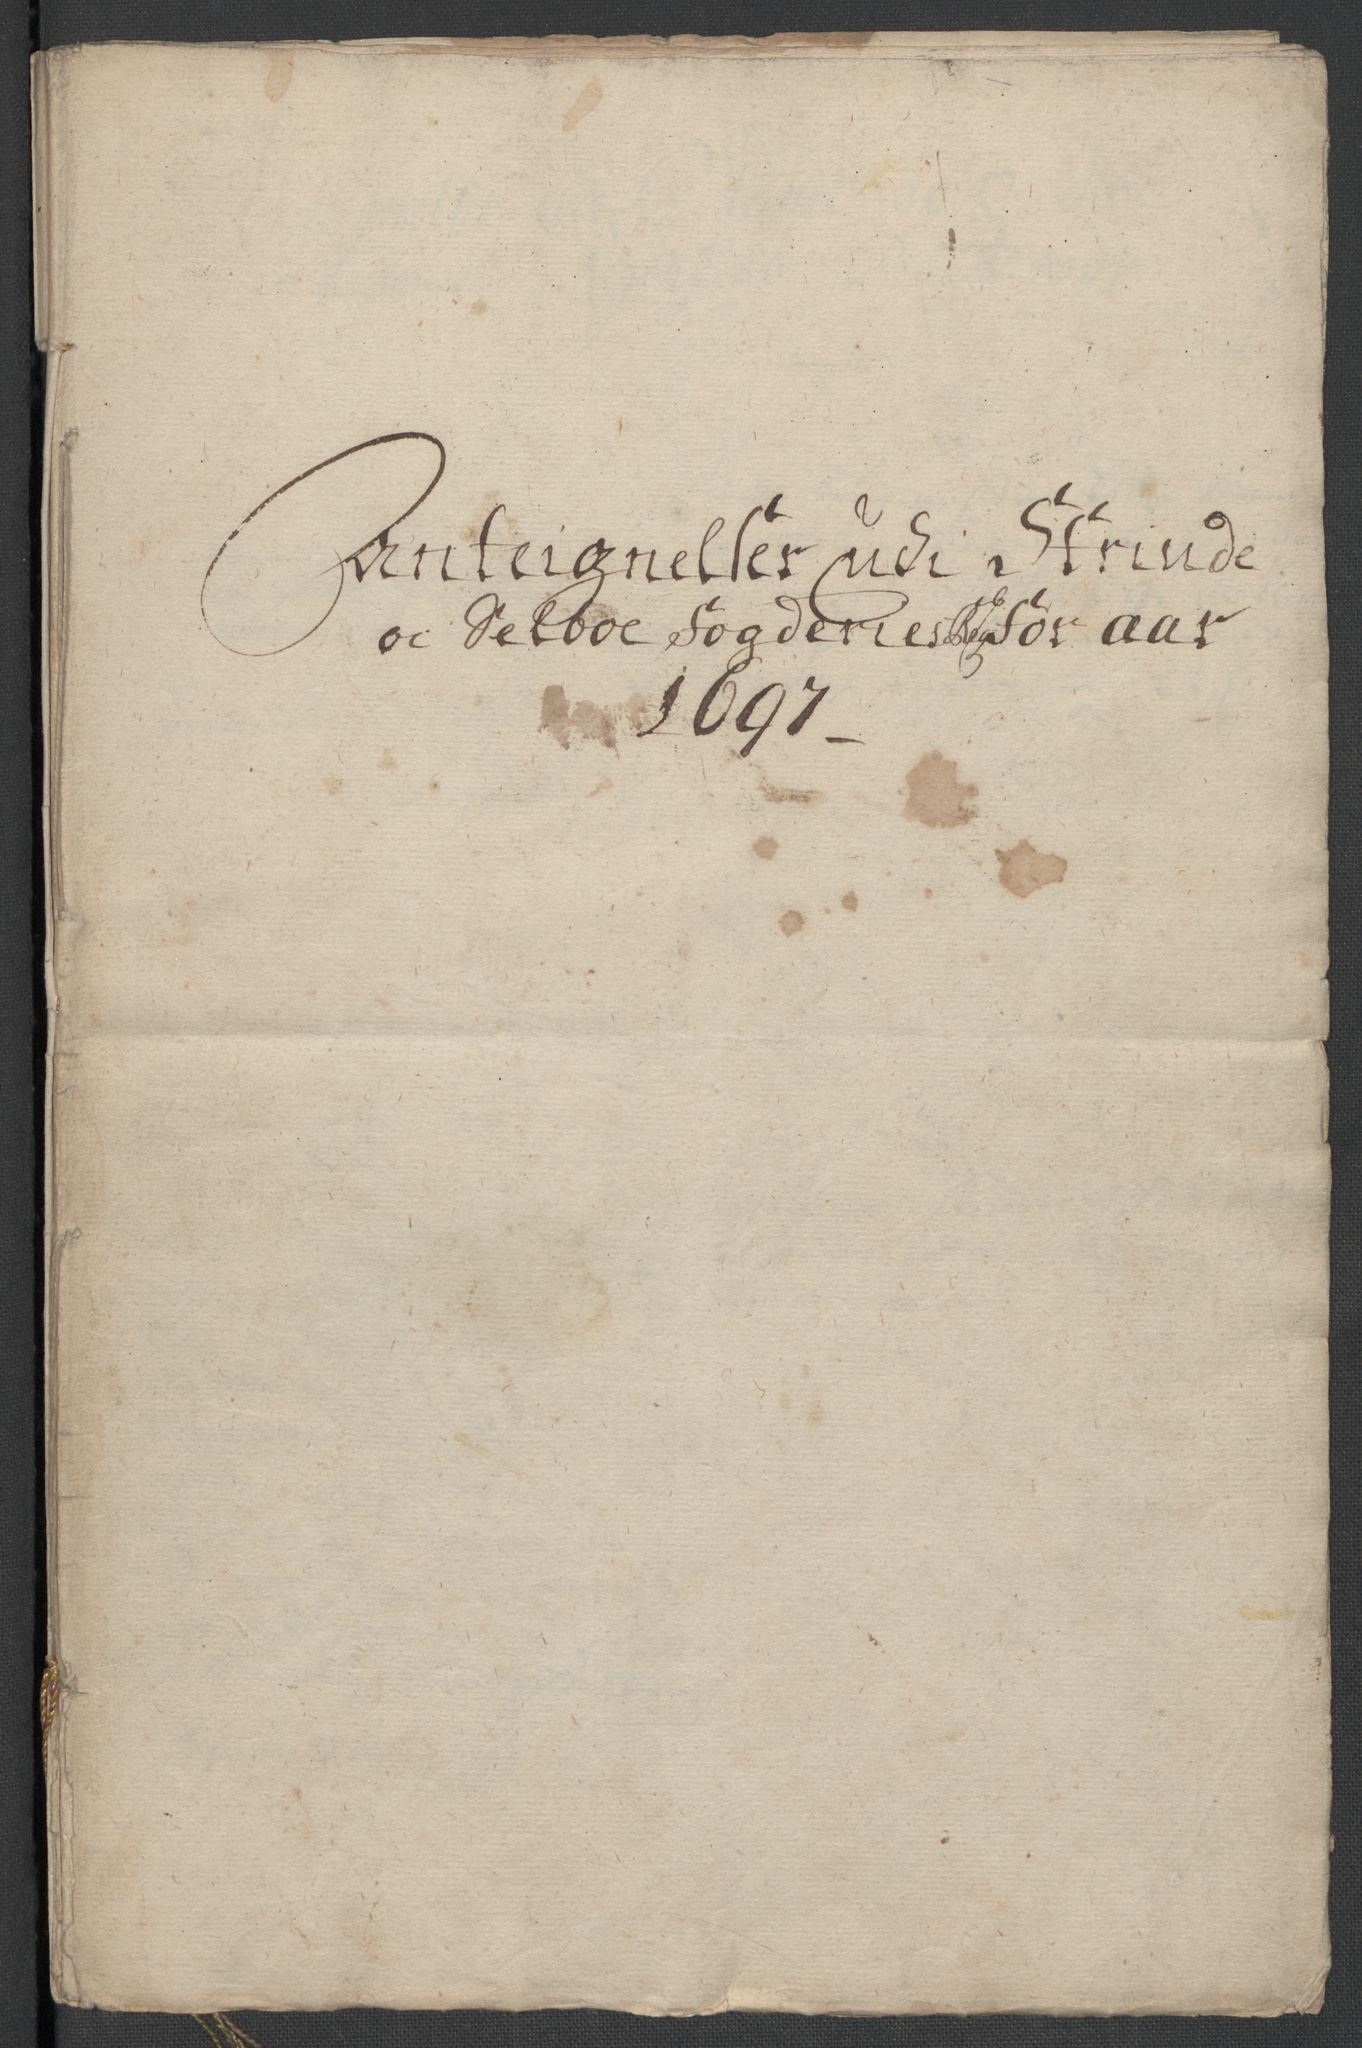 Anteignelser udi Strinde
oc Selboe fogderies for aar
1697